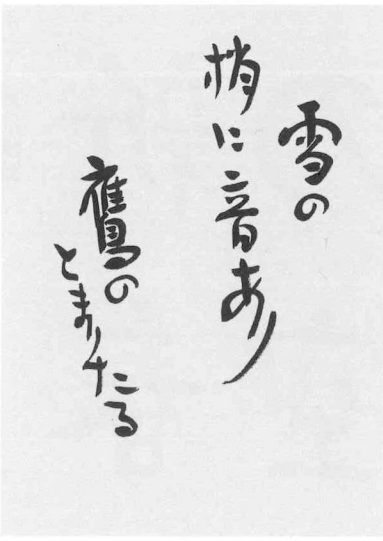 雪の
梢に音あり
鷹の
とまりたる